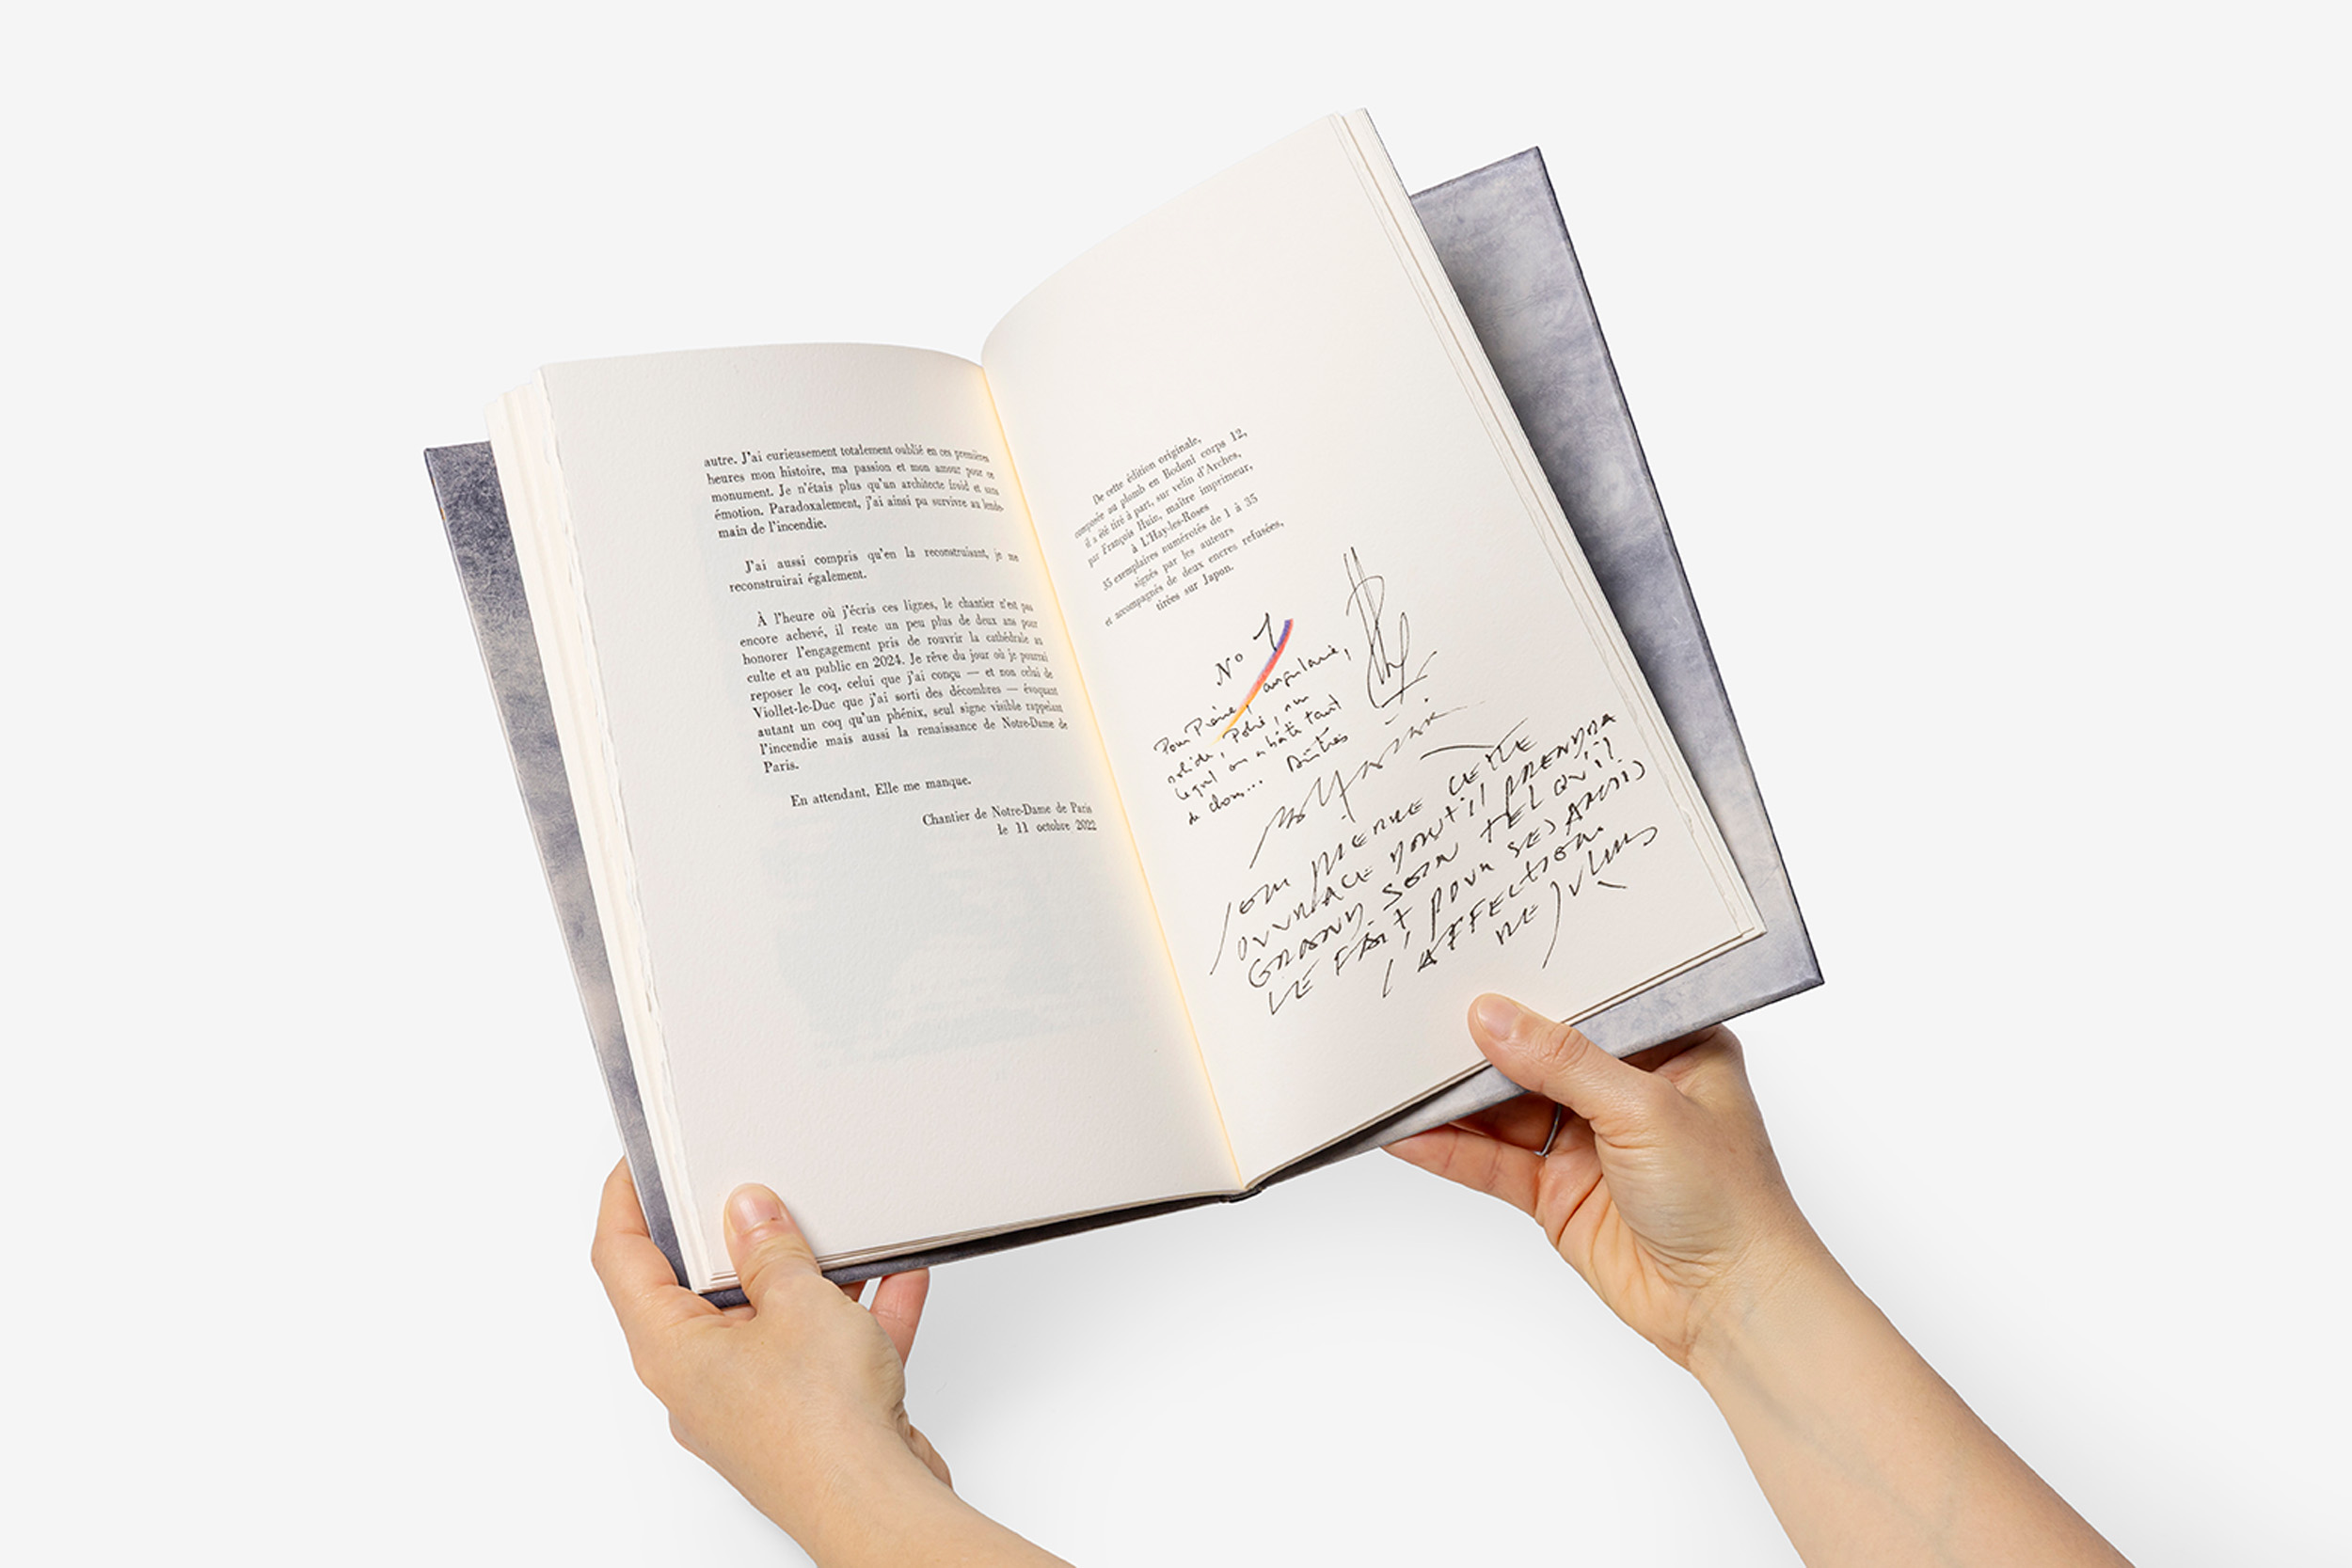 autre. J'ai curieusement totalement oublié en ces premières
heures mon histoire, ma passion et mon amour pour ce
monument. Je n'étais plus qu'un architecte froid et sans
émotion. Paradoxalement, j'ai ainsi pu survivre au lende-
main de l'incendie.
J'ai aussi compris qu'en la reconstruisant, je me
reconstruirai également.
À l'heure où j'écris ces lignes, le chantier n'est pas
encore achevé, il reste un peu plus de deux ans pour
honorer l'engagement pris de rouvrir la cathédrale au
culte et au public en 2024. Je rêve du jour où je pourrai
reposer le coq, celui que j'ai conçu — et non celui de
Viollet-le-Duc que j'ai sorti des décombres — évoquant
autant un coq qu'un phénix, seul signe visible rappelant
l'incendie mais aussi la renaissance de Notre-Dame de
Paris.
En attendant, Elle me manque.
Chantier de Notre-Dame de Paris
le 11 octobre 2022
De cette édition originale,
composée au plomb en Bodoni corps 12,
il a été tiré à part, sur velin d'Arches,
par François Huin, maître imprimeur,
à L'Hay-les-Roses
35 exemplaires numérotés de 1 à 35
signés par les auteurs
et accompagnés de deux encres refusées,
tirées sur Japon.
N° 1
Pour Pierre, angulaire,
solide, sur
lequel on a bâti tant
de choses...
POUR PIERRE CETTE
OUVRAGE DONT IL PRENDRA
GRAND SOIN TEL QU'IL
LE FAIT POUR SES AMIS
L'AFFECTION
DE JULIUS